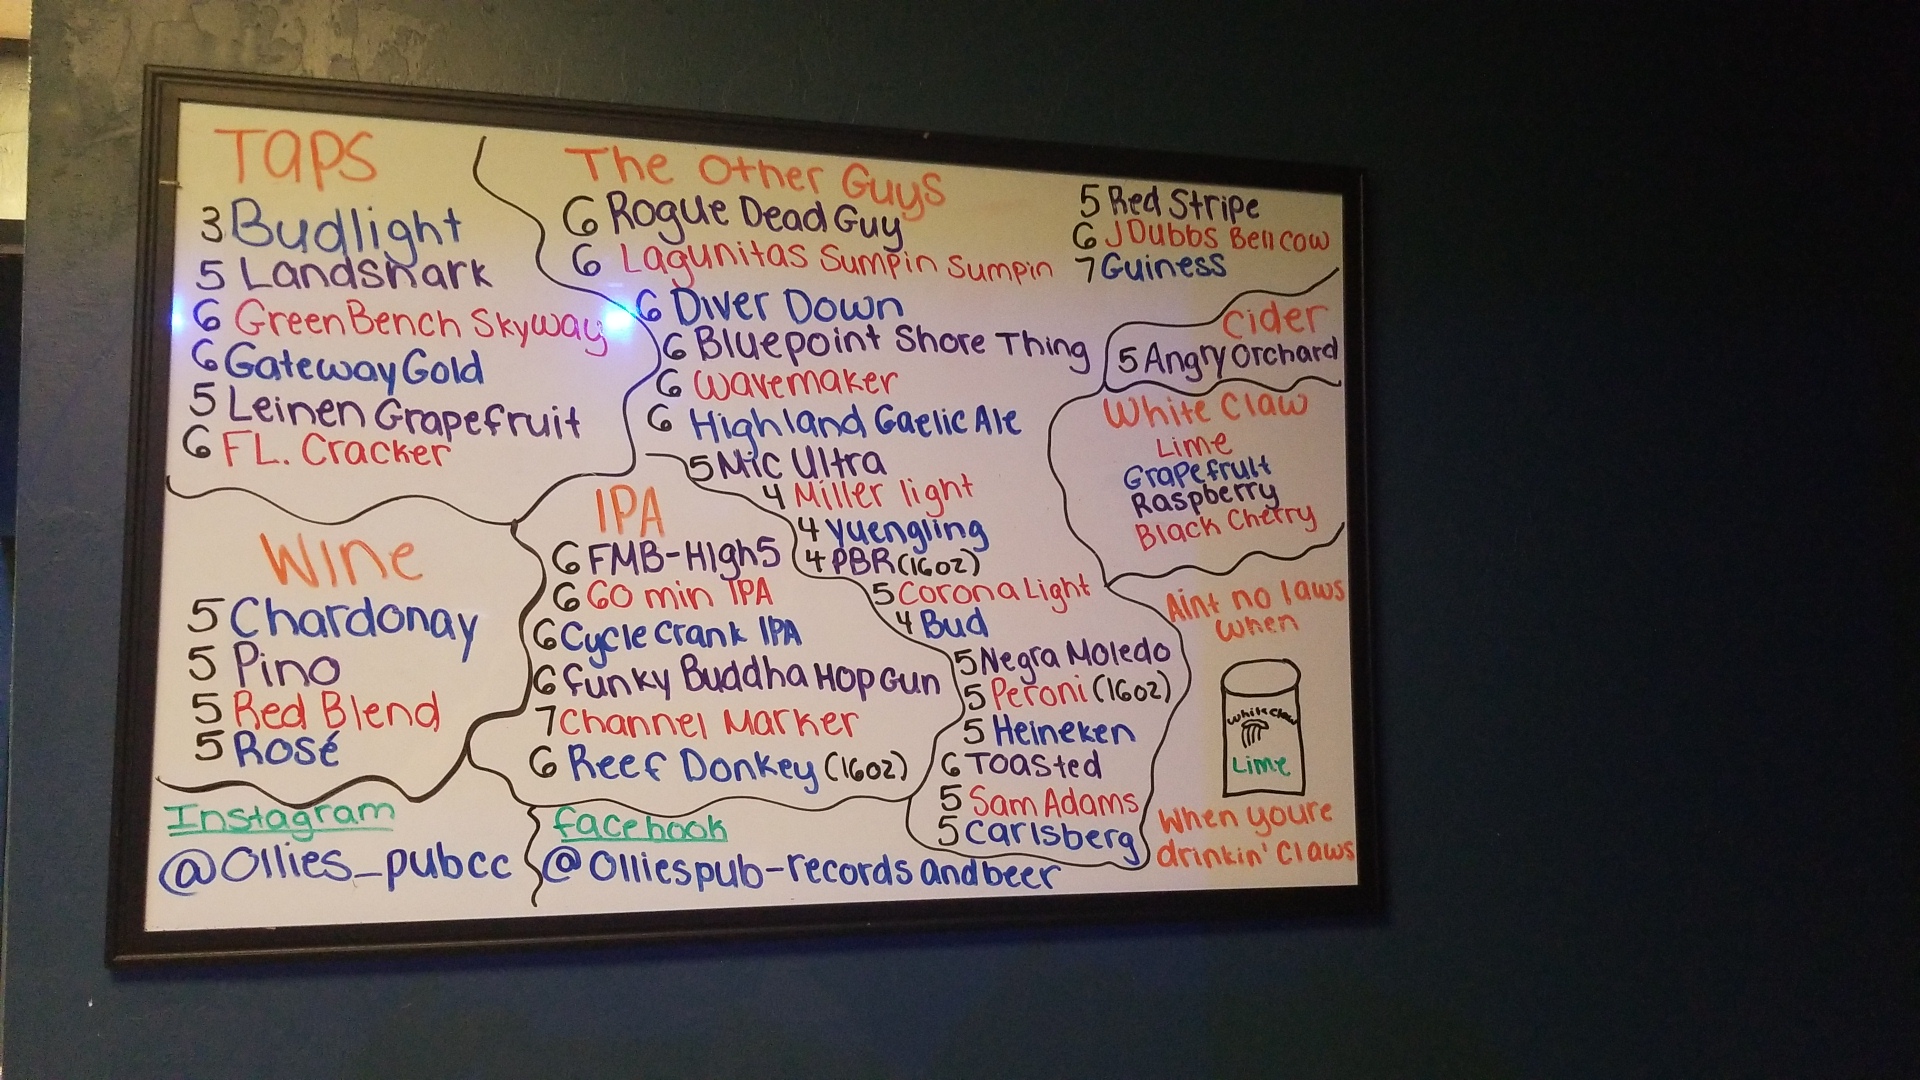 Taps
3 Budlight
5 Landshark
6 GreenBench Skyway
6 Gateway Gold
5 Leinen Grapefruit
6 FL. Cracker
The Other Guys
6 Rogue Dead Guy
6 Lagunitas Sumpin Sumpin
6 Diver Down
6 Bluepoint Shore Thing
6 Wavemaker
6 Highland Gaelic Ale
5 Mic Ultra
4 Miller light
4 Yuengling
4 PBR (16oz)
5 Corona Light
4 Bud
5 Negra Moledo
5 Peroni (16oz)
5 Heineken
6 Toasted
5 Sam Adams
5 Carlsberg
5 Red Stripe
6 JDubbs Bell cow
7 Guiness
Cider
5 Angry Orchard
White Claw
Lime
Grapefruit
Raspberry
Black Cherry
Aint no laws
when
White Claw
Lime
When youre
drinkin' Claws
Wine
5 Chardonay
5 Pino
5 Red Blend
5 Rosé
IPA
6 FMB-High5
6 60 min IPA
6 Cycle Crank IPA
6 Funky Buddha Hop Gun
7 Channel Marker
6 Reef Donkey (16oz)
Instagram
@Ollies_pubcc
facebook
@Olliespub-records and beer